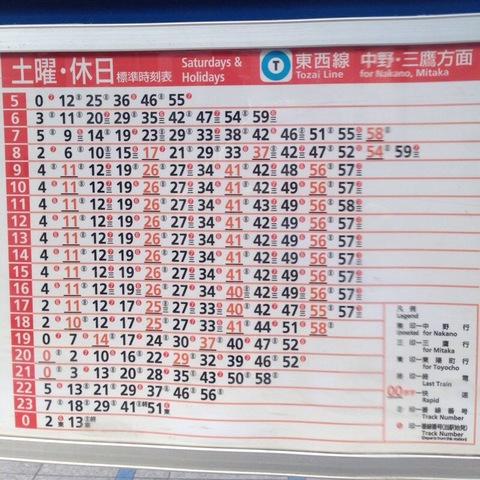 土曜・休日 標準時刻表 Saturdays & Holidays T 東西線 Tozai Line 中野・三鷹方面 for Nakano, Mitaka
5 0 12 25 36 46 55
6 3 11 20 29 35 42 47 54 59
7 5 9 14 19 23 29 33 38 42 46 51 55 58
8 2 6 10 15 17 21 29 33 37 42 47 52 54 59
9 4 11 12 19 26 27 34 41 42 48 56 57
10 4 11 12 19 26 27 34 41 42 49 56 57
11 4 11 12 19 26 27 34 41 43 49 56 58
12 4 11 12 19 26 27 34 41 42 49 56 57
13 4 11 12 19 26 27 34 41 42 49 56 57
14 4 11 12 19 26 27 34 41 42 49 56 57
15 4 11 12 19 26 27 34 41 42 49 56 57
16 4 11 12 19 26 27 34 40 42 49 56 57
17 2 11 12 17 25 27 33 40 42 47 55 57
18 2 10 12 17 25 27 33 41 44 51 58
19 0 7 14 17 24 30 37 40 47 52
20 0 2 10 16 22 29 32 39 46 52
21 0 3 13 20 28 35 43 50 58
22 5 13 21 29 37 46 56
23 7 18 29 41 51
0 2 13
凡例
Legend
無印―中野行
Unmarked for Nakano
三印―三鷹行
for Mitaka
東印―東陽町行
for Toyocho
終印―終電
Last Train
00赤字―快速
Rapid
印―番線番号
Track Number
印―番線番号(当駅始発)
Track Number
(Departs from this station)